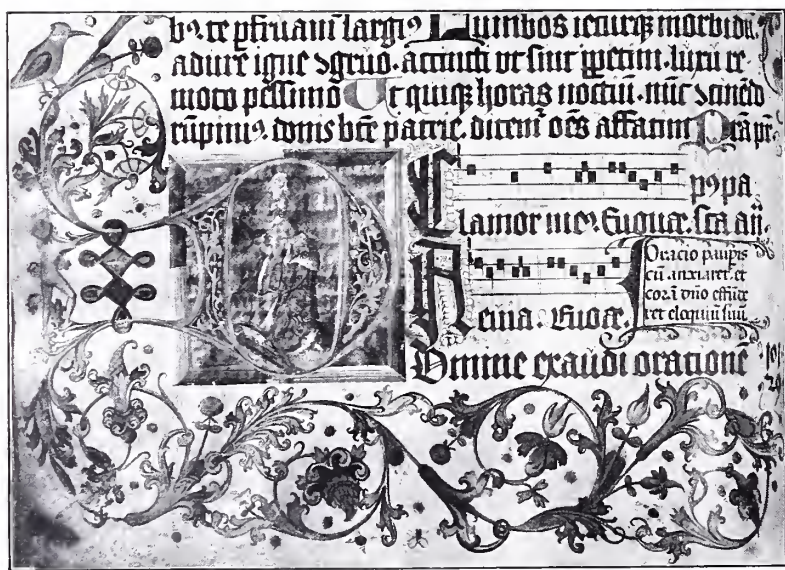 bꝰ. te ꝑfruam̄ largiꝰ Lumbos iecurqꝫ morbidū.
adure igne ɔgruo. accincti vt sint ꝑpetim. luxu re
moto pessimo Ut quiqꝫ horas noctiū. nūc ɔcinēdo
rūpimꝰ. donis bt̄e patrie. ditem̄ oēs affatim Prā pr̄.
pꝰpa
Clamor meꝰ. Euouae. sc̄a añ.
Oracio paupis
cū anxiaret et
corā dn̄o effūde
ret eloquiū suū
Domine exaudi oratione